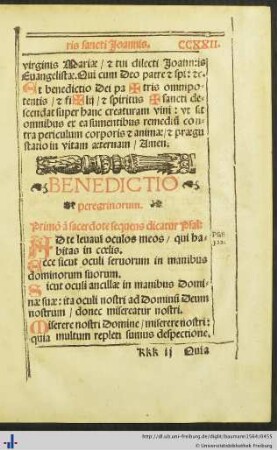 ris sancti Joannis. CCXXII.
virginis Mariæ / & tui dilecti Joannis
Euangelistæ. Qui cum Deo patre & spi: &c.
Et benedictio Dei pa ✠ tris omnipo-
tentis / & fi ✠ lij / & spiritus ✠ sancti de-
scendat super hanc creaturam vini: vt sit
omnibus ex ea sumentibus remediũ con-
tra periculum corporis & animæ / & prægu-
statio in vitam æternam / Amen.
BENEDICTIO
peregrinorum.
Primò à sacerdote sequens dicatur Psal:
AD te leuaui oculos meos / qui ha-
bitas in cœlis.
Ecce sicut oculi seruorum in manibus
dominorum suorum.
Sicut oculi ancillæ in manibus Domi-
næ suæ: ita oculi nostri ad Dominũ Deum
nostrum / donec misereatur nostri.
Miserere nostri Domine / miserere nostri:
quia multum repleti sumus despectione.
KKK ij Quia
http://dl.ub.uni-freiburg.de/diglit/baumann1564/0455
© Universitätsbibliothek Freiburg